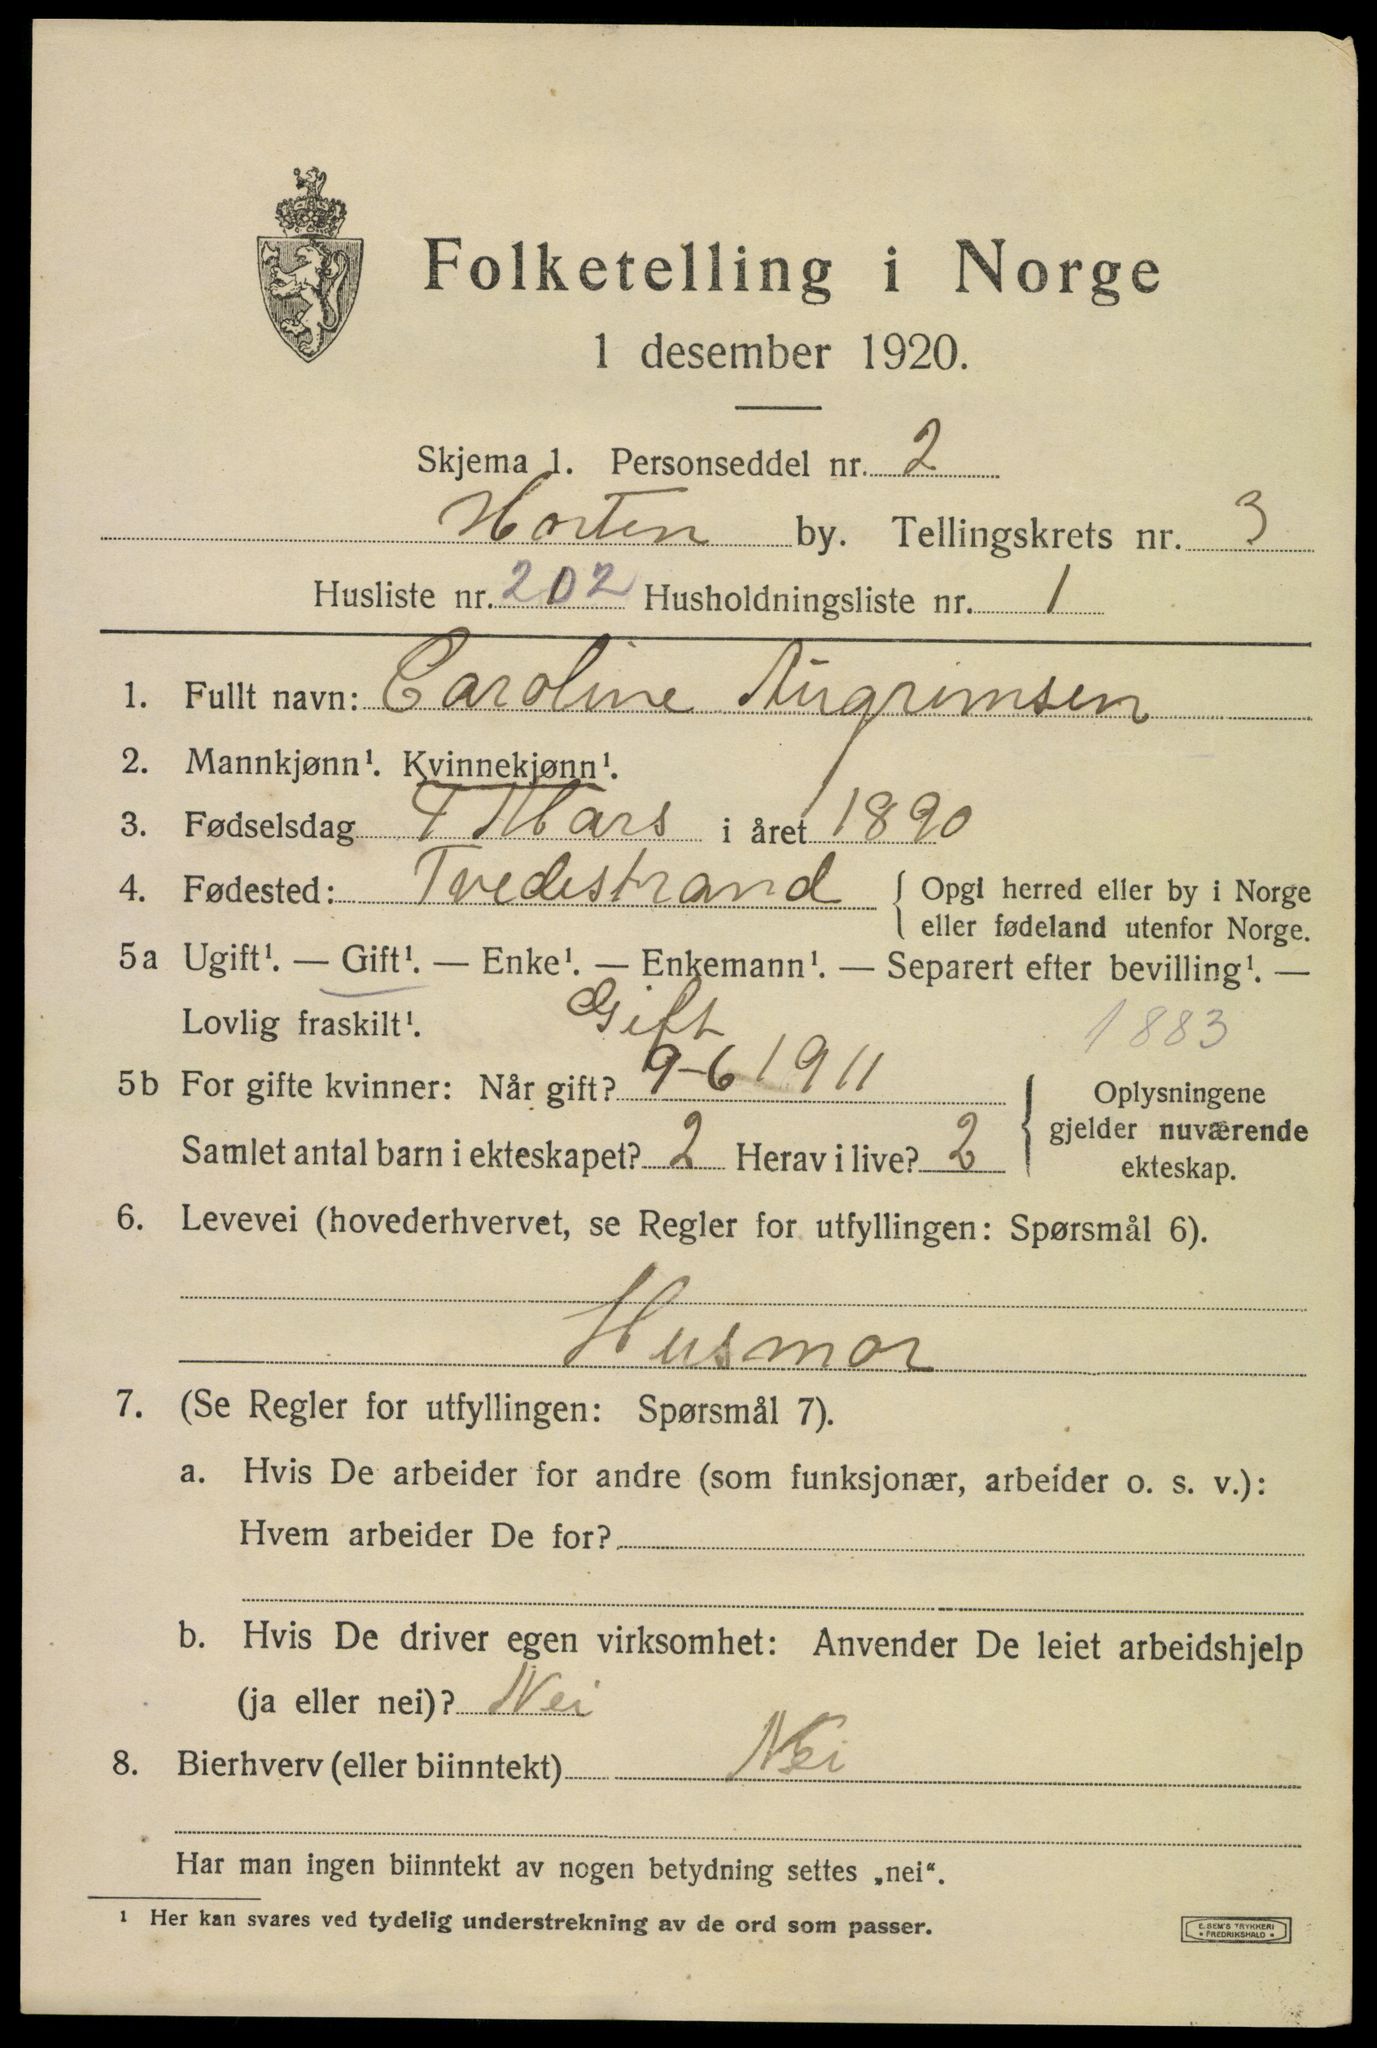 Folketelling i Norge
1 desember 1920.
Skjema 1. Personseddel nr. 2
Horten by. Tellingskrets nr. 3
Husliste nr. 202 Husholdningsliste nr. 1
1. Fullt navn: Caroline
2. Mannkjønn¹. Kvinnekjønn¹.
3. Fødselsdag 7 Mars i året 1890
4. Fødested: Tvedestrand { Opgi herred eller by i Norge
eller fødeland utenfor Norge.
5a Ugift¹. — Gift¹. — Enke¹. — Enkemann¹. — Separert efter bevilling¹. —
Lovlig fraskilt¹. Gift 1883
5b For gifte kvinner: Når gift? 9-6 1911
Samlet antal barn i ekteskapet? 2 Herav i live? 2
{ Oplysningene
gjelder nuværende
ekteskap.
6. Levevei (hovederhvervet, se Regler for utfyllingen: Spørsmål 6).
Husmor
7. (Se Regler for utfyllingen: Spørsmål 7).
a. Hvis De arbeider for andre (som funksjonær, arbeider o. s. v.):
Hvem arbeider De for?
b. Hvis De driver egen virksomhet: Anvender De leiet arbeidshjelp
(ja eller nei)? Nei
8. Bierhverv (eller biinntekt) Nei
Har man ingen biinntekt av nogen betydning settes „nei“.
¹ Her kan svares ved tydelig understrekning av de ord som passer.
E. SEM'S TRYKKERI
• FREDRIKSHALD •